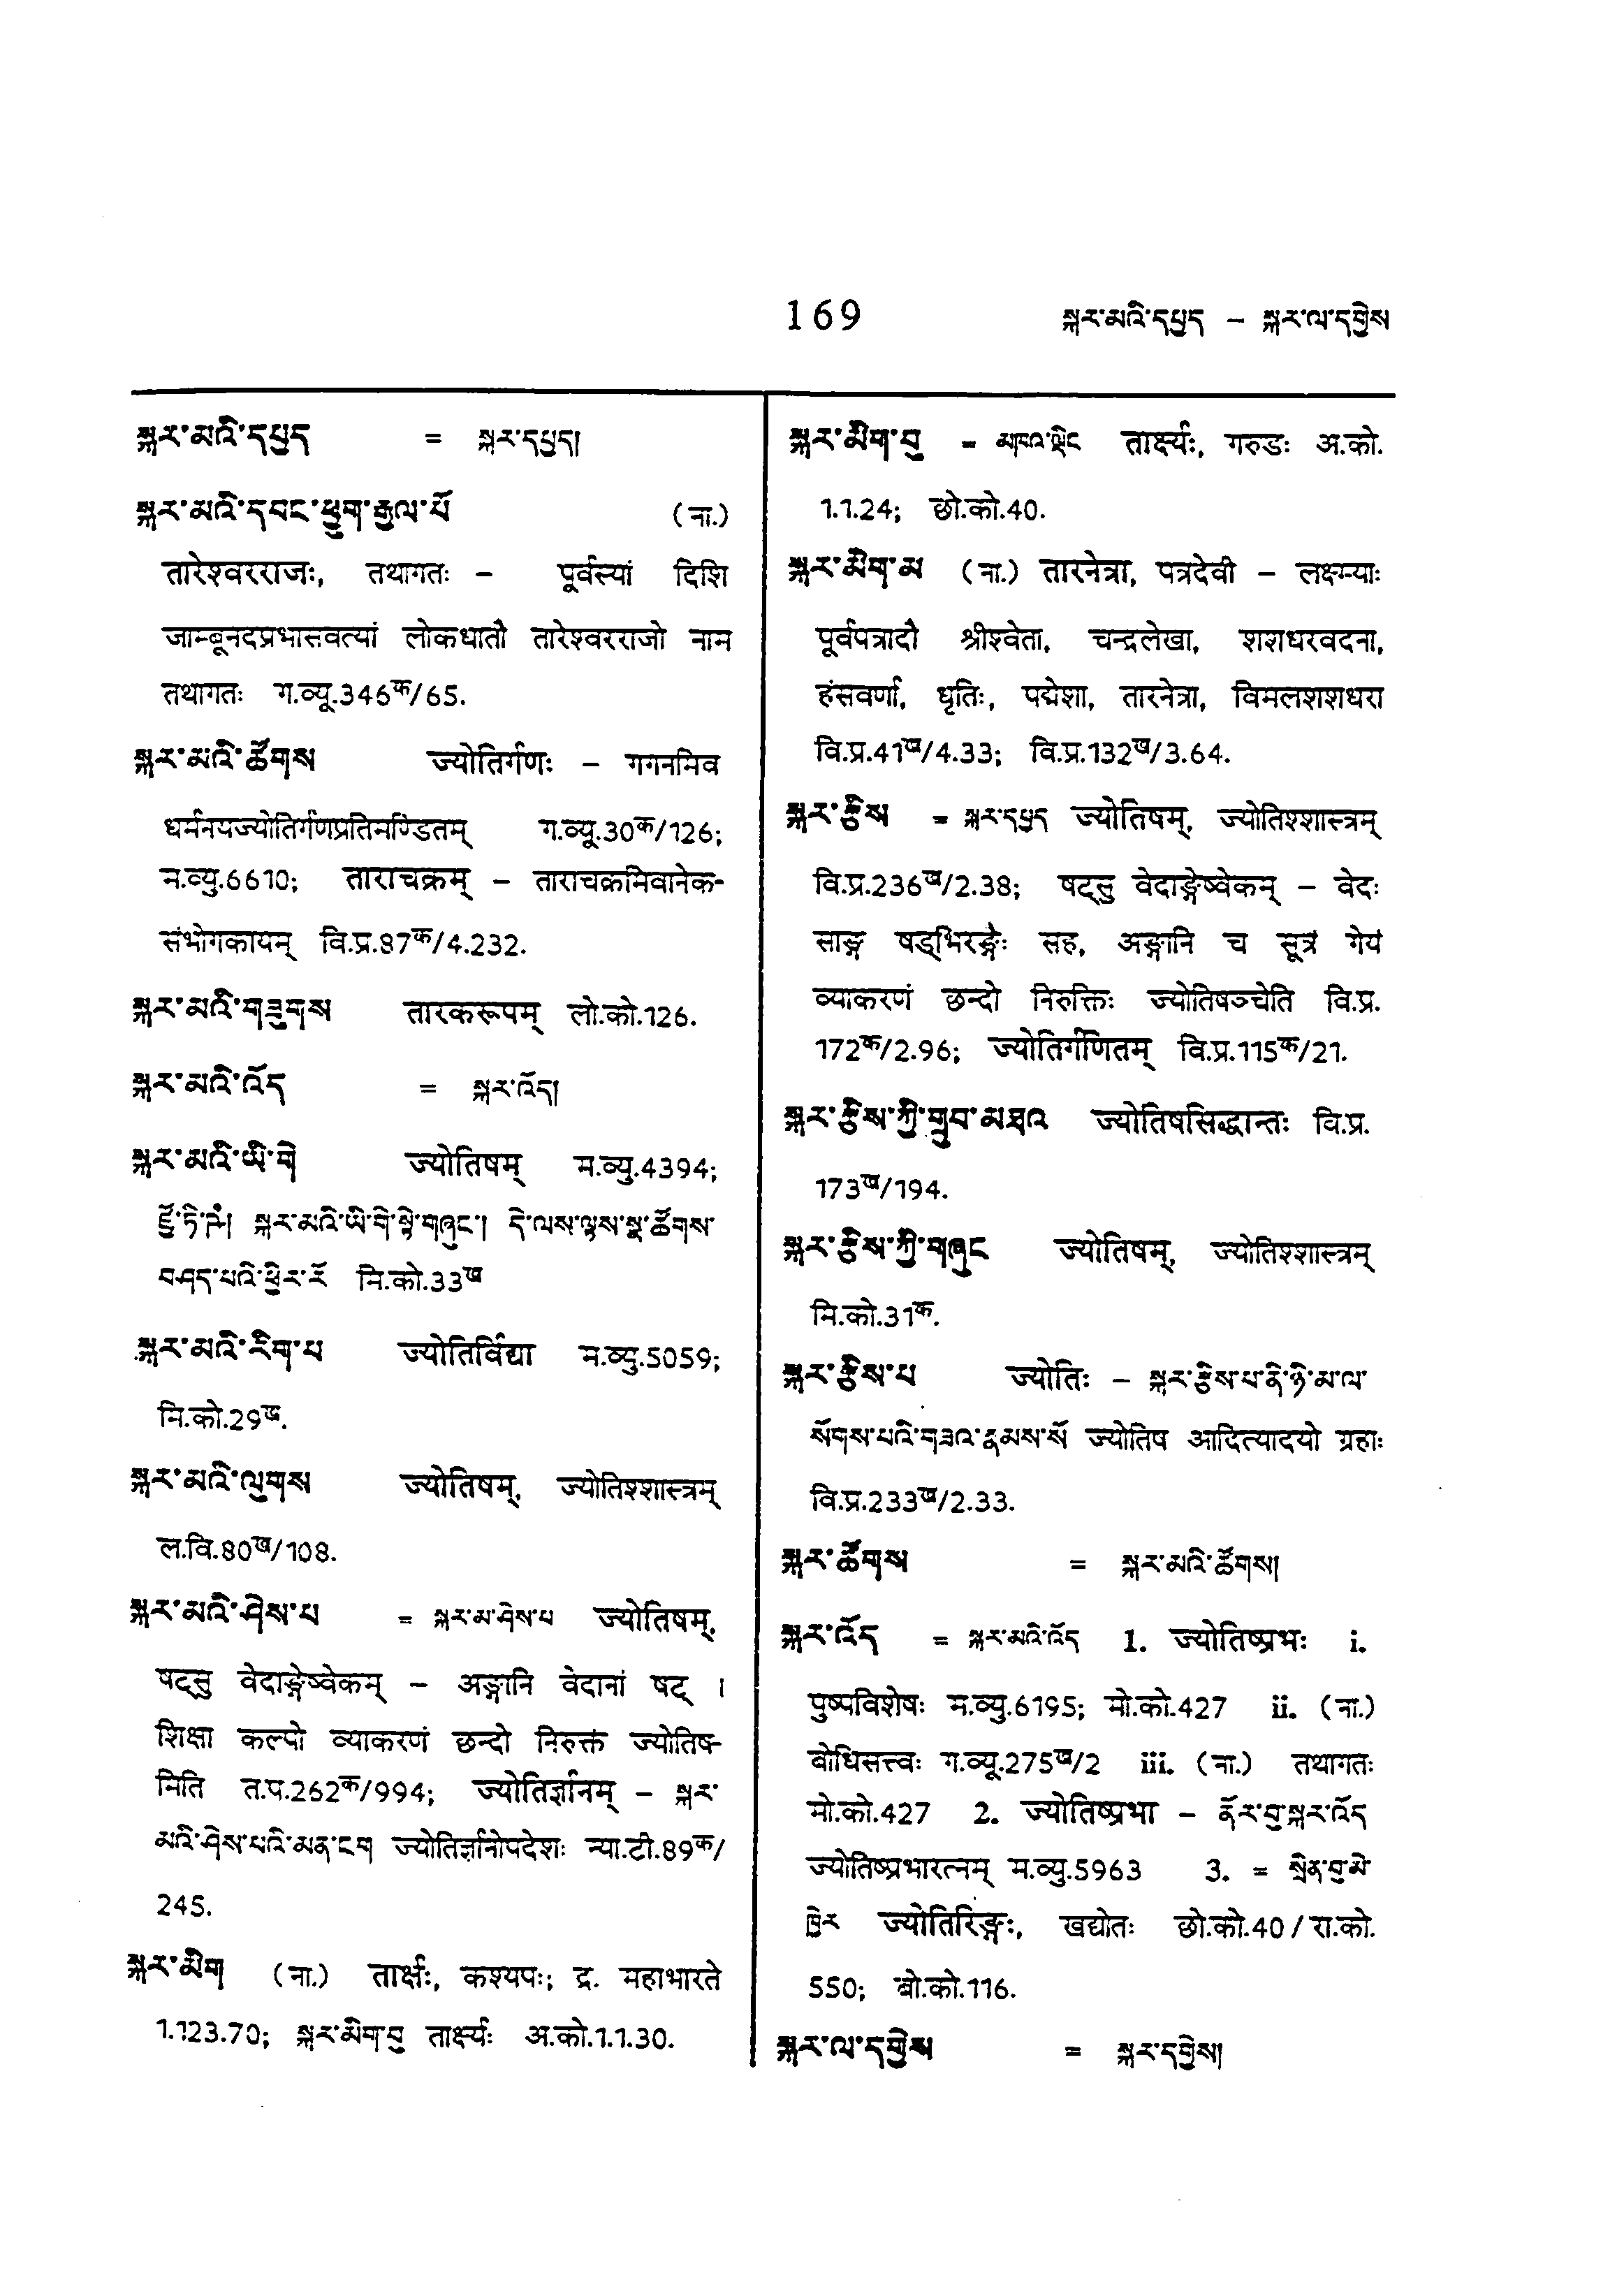 169 སྐར་མའི་དཔྱད – སྐར་ལ་དགྱེས
སྐར་མའི་དཔྱད = སྐར་དཔྱད།
སྐར་མའི་དབང་ཕྱུག་རྒྱལ་པོ (ना.)
तारेश्वरराजः, तथागतः – पूर्वस्यां दिशि
जाम्बूनदप्रभासवत्यां लोकधातौ तारेश्वरराजो नाम
तथागतः ग.व्यू.346क/65.
སྐར་མའི་ཚོགས ज्योतिर्गणः – गगनमिव
धर्मनयज्योतिर्गणप्रतिमण्डितम् ग.व्यू.30क/126;
म.व्यु.6610; ताराचक्रम् – ताराचक्रमिवानेक-
संभोगकायम् वि.प्र.87क/4.232.
སྐར་མའི་གཟུགས तारकरूपम् लो.को.126.
སྐར་མའི་འོད = སྐར་འོད།
སྐར་མའི་ཡི་གེ ज्योतिषम् म.व्यु.4394;
ཛྱོ་ཏི་ཥཾ། སྐར་མའི་ཡི་གེ་སྟེ་གཞུང་། དེ་ལས་ལྟས་སྣ་ཚོགས་
བཤད་པའི་ཕྱིར་རོ मि.को.33ख
སྐར་མའི་རིག་པ ज्योतिर्विद्या म.व्यु.5059;
मि.को.29ख.
སྐར་མའི་ལུགས ज्योतिषम्, ज्योतिश्शास्त्रम्
ल.वि.80ख/108.
སྐར་མའི་ཤེས་པ = སྐར་མ་ཤེས་པ ज्योतिषम्,
षट्सु वेदाङ्गेष्वेकम् – अङ्गानि वेदानां षट् ।
शिक्षा कल्पो व्याकरणं छन्दो निरुक्तं ज्योतिष-
मिति त.प.262क/994; ज्योतिर्ज्ञानम् – སྐར་
མའི་ཤེས་པའི་མན་ངག ज्योतिर्ज्ञानोपदेशः न्या.टी.89क/
245.
སྐར་མིག (ना.) तार्क्षः, कश्यपः; द्र. महाभारते
1.123.70; སྐར་མིག་བུ तार्क्ष्यः अ.को.1.1.30.
སྐར་མིག་བུ = མཁའ་ལྡིང तार्क्ष्यः, गरुडः अ.को.
1.1.24; छो.को.40.
སྐར་མིག་མ (ना.) तारनेत्रा, पत्रदेवी – लक्ष्म्याः
पूर्वपत्रादौ श्रीश्वेता, चन्द्रलेखा, शशधरवदना,
हंसवर्णा, धृतिः, पद्मेशा, तारनेत्रा, विमलशशधरा
वि.प्र.41ख/4.33; वि.प्र.132ख/3.64.
སྐར་རྩིས = སྐར་དཔྱད ज्योतिषम्, ज्योतिश्शास्त्रम्
वि.प्र.236ख/2.38; षट्सु वेदाङ्गेष्वेकम् – वेदः
साङ्ग षड्भिरङ्गैः सह, अङ्गानि च सूत्रं गेयं
व्याकरणं छन्दो निरुक्तिः ज्योतिषञ्चेति वि.प्र.
172क/2.96; ज्योतिर्गणितम् वि.प्र.115क/21.
སྐར་རྩིས་ཀྱི་གྲུབ་མཐའ ज्योतिषसिद्धान्तः वि.प्र.
173ख/194.
སྐར་རྩིས་ཀྱི་གཞུང ज्योतिषम्, ज्योतिश्शास्त्रम्
मि.को.31क.
སྐར་རྩིས་པ ज्योतिः – སྐར་རྩིས་པ་ནི་ཉི་མ་ལ་
སོགས་པའི་གཟའ་རྣམས་སོ ज्योतिष आदित्यादयो ग्रहाः
वि.प्र.233ख/2.33.
སྐར་ཚོགས = སྐར་མའི་ཚོགས།
སྐར་འོད = སྐར་མའི་འོད 1. ज्योतिष्प्रभः i.
पुष्पविशेषः म.व्यु.6195; मो.को.427 ii. (ना.)
बोधिसत्त्वः ग.व्यू.275ख/2 iii. (ना.) तथागतः
मो.को.427 2. ज्योतिष्प्रभा – ནོར་བུ་སྐར་འོད
ज्योतिष्प्रभारत्नम् म.व्यु.5963 3. = སྲིན་བུ་མེ་
ཁྱེར ज्योतिरिङ्गः, खद्योतः छो.को.40/रा.को.
550; बो.को.116.
སྐར་ལ་དགྱེས = སྐར་དགྱེས།